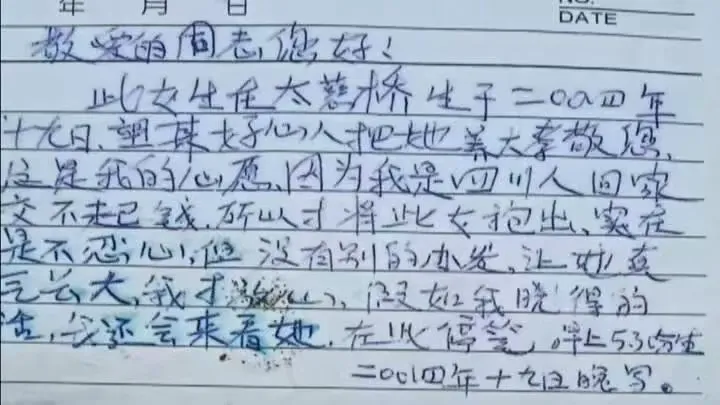 年 月 日
NO.
DATE
敬爱的同志,您好!
此女生在太慈桥生于二00四年
十九日,望某好心人把她养大孝敬您,
这是我的心愿,因为我是四川人回家
交不起己钱,所以才将此女抱出,实在
是不忍心,但没有别的办发,让她
长大,我才心,假如我晓得的
话,会还会来看她,在此停笔,
二00四年十九日晚写。